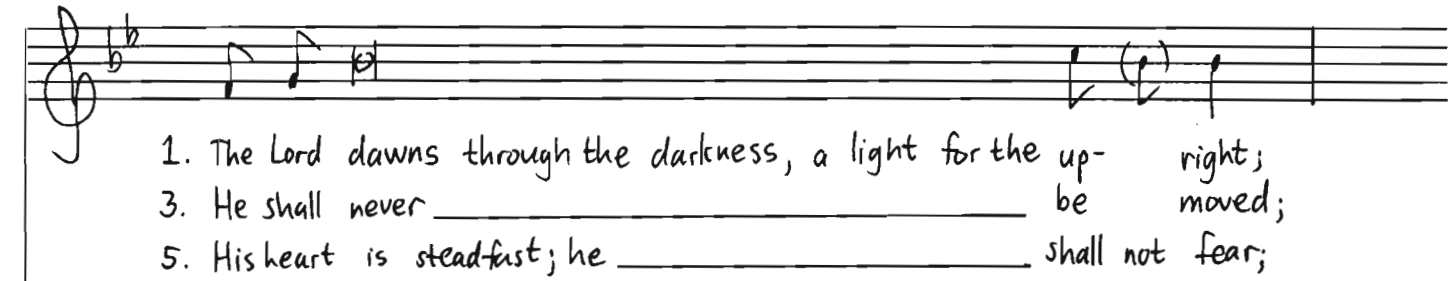 1. The Lord dawns through the darkness, a light for the up- right;
3. He shall never ____________ be moved;
5. His heart is steadfast; he ____________ shall not fear;